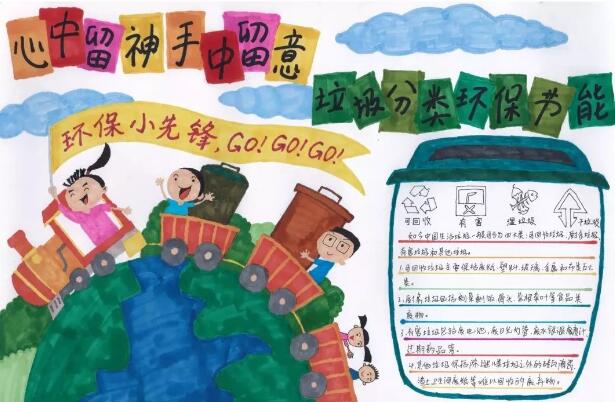 心中留神手中留意
垃圾分类环保节能
环保小先锋,GO!GO!GO!
可回收 有害 湿垃圾 干垃圾
如今中国生活垃圾一般可分为四大类:可回收垃圾、厨余垃圾、
有害垃圾和其他垃圾。
1.可回收垃圾主要包括废纸、塑料、玻璃、金属和布类五大
类。
2.厨房垃圾包括剩菜剩饭、骨头、菜根菜叶等食品类
废物。
3.有害垃圾包括废电池、废日光灯管、废水银温度计、
过期药品等。
4.其他垃圾包括除上述几类垃圾之外的砖瓦陶瓷、
渣土、卫生间废纸等难以回收的废弃物。